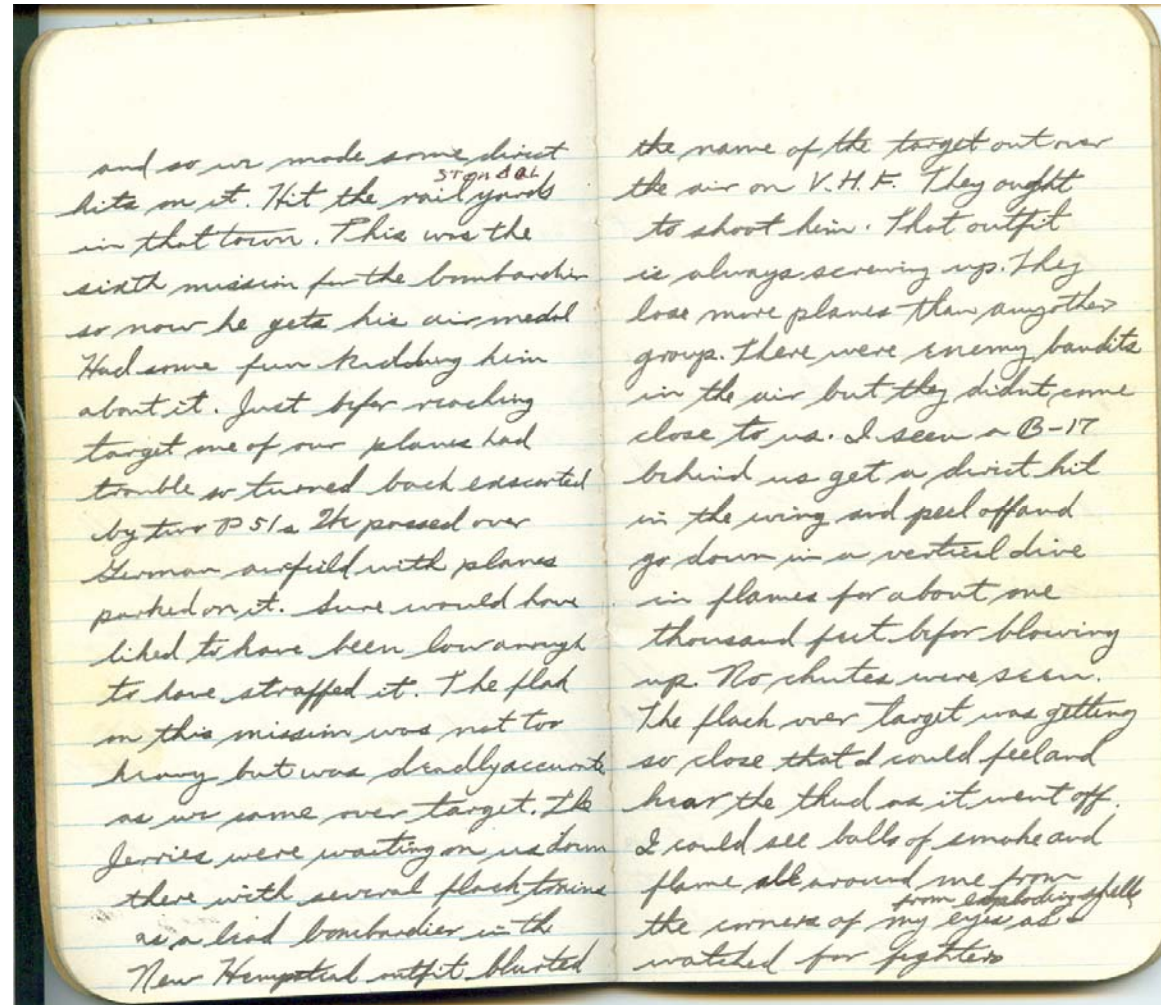 and so we made some direct
STENDAL
hits on it. Hit the rail yards
in that town. This was the
sixth mission for the bombardier
so now he gets his air medal
Had some fun kidding him
about it. Just befor reaching
target one of our planes had
trouble so turned back enscorted
by two P 51s We passed over
German airfield with planes
parked on it. Sure would have
liked to have been low anough
to have straffed it. The flak
on this mission was not too
heavy but was deadly accurate
as we came over target. The
Jerries were waiting on us down
there with several flack trains
as a lead bombardier in the
New outfit blurted
the name of the target out over
the air on V.H.F. They ought
to shoot him. That outfit
is always screwing up. They
lose more planes than anyother
group. There were enemy bandits
in the air but they didnt come
close to us. I seen a B-17
behind us get a direct hit
in the wing and peel off and
go down in a vertical dive
in flames for about one
thousand feet befor blowing
up. No chutes were seen.
The flack over target was getting
so close that I could feel and
hear the thud as it went off.
I could see balls of smoke and
flame all around me from
from exploding shells
the corners of my eyes as
watched for fighters